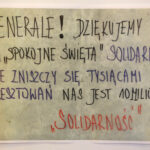 GENERALE! DZIĘKUJEMY
"SPOKOJNE ŚWIĘTA" SOLIDAR
E ZNISZCZY SIĘ TYSIĄCAMI
ESZTOWAŃ NAS JEST 10 MILIO
"SOLIDARNOŚĆ"